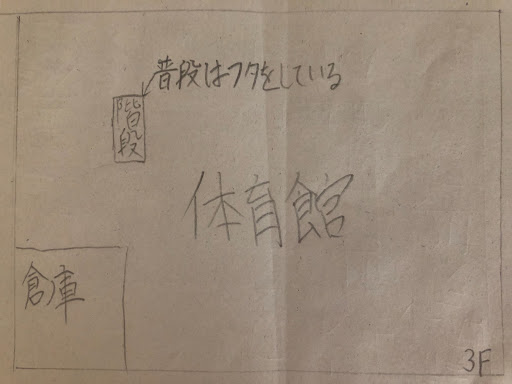 普段はフタをしている
階段
体育館
倉庫
3F